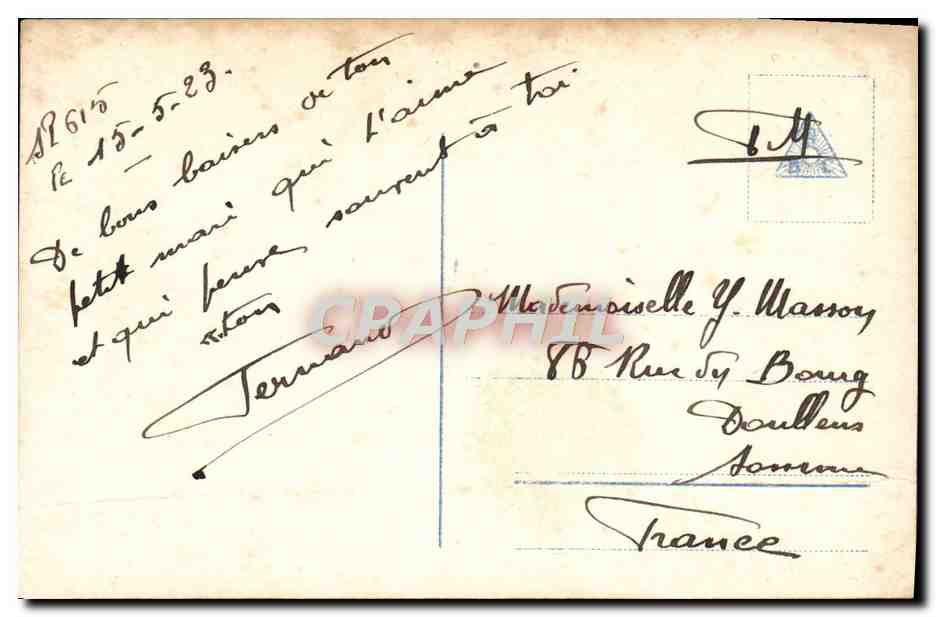 SP 615
le 15-5-23.
De bons baisers de ton
petit mari qui t'aime
et qui pense souvent à toi
ton
Fernand
FM
Mademoiselle Y. Masson
8B Rue du Bourg
Doullens
Somme
France
CRAPHIL